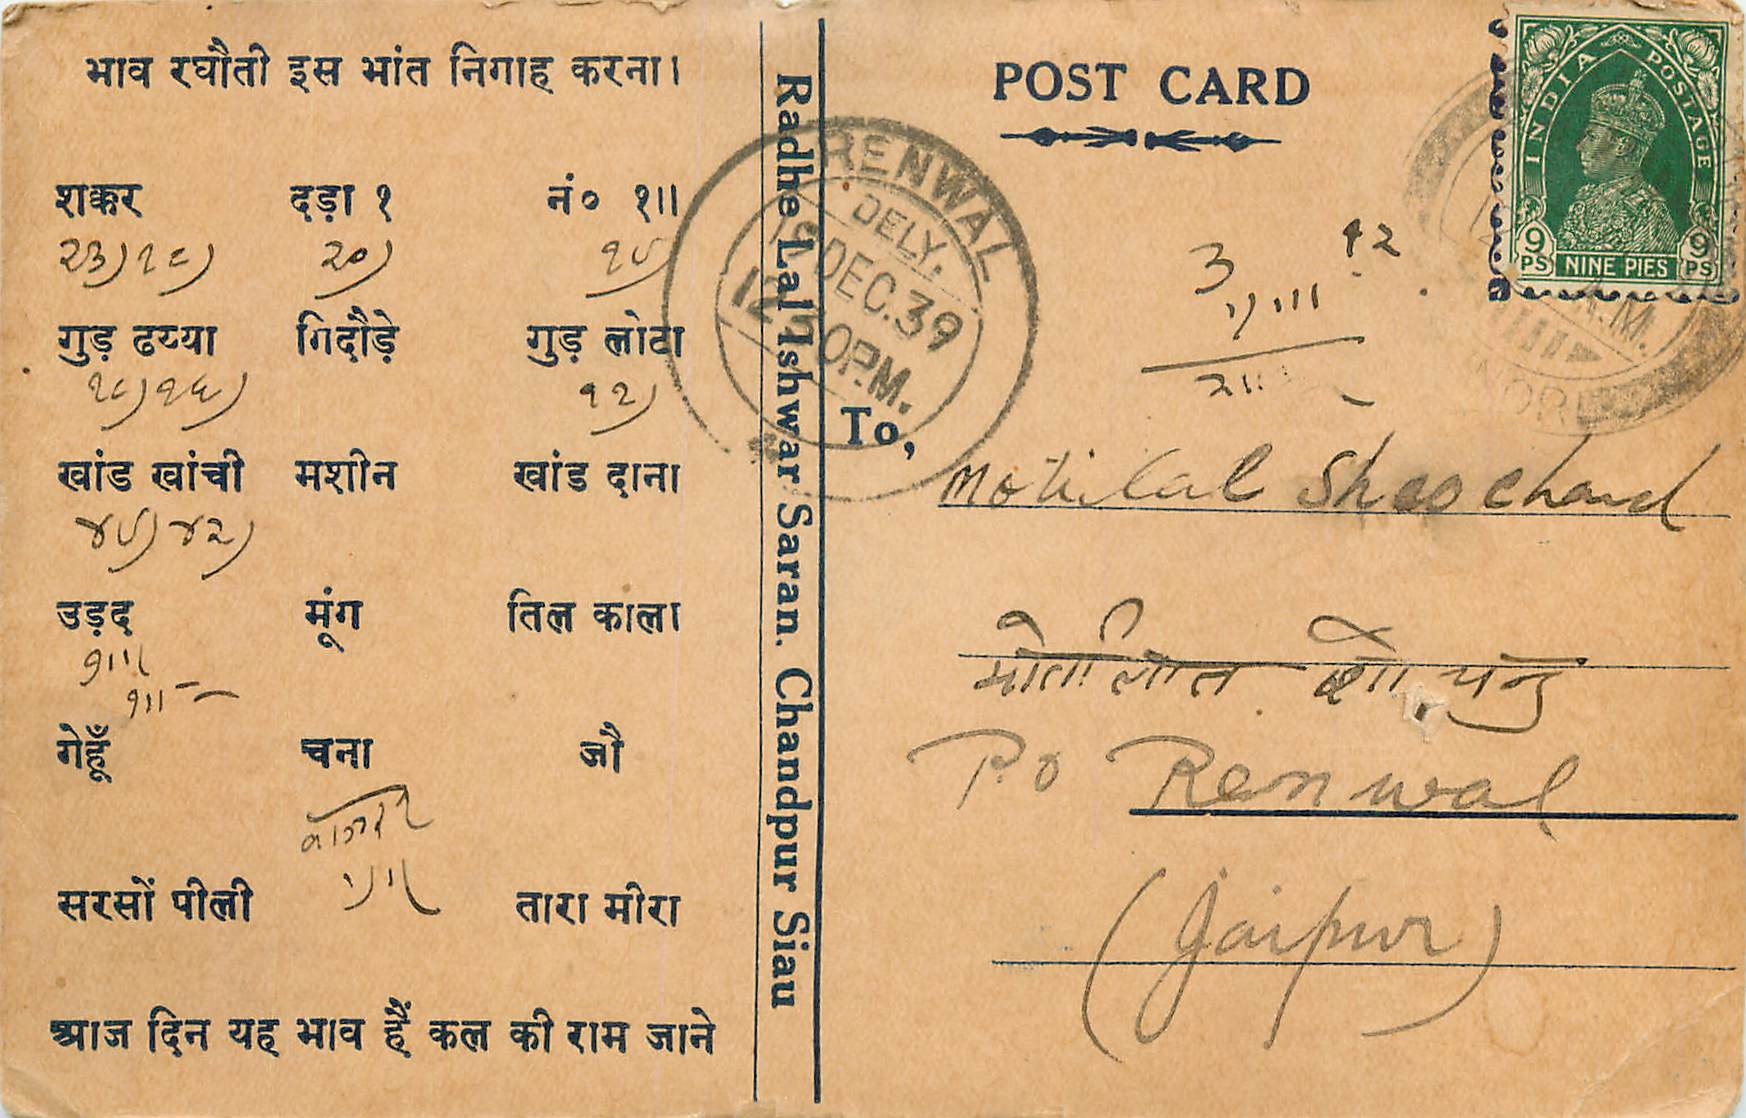 भाव रघौती इस भांत निगाह करना।
शक्कर दड़ा १ नं० १॥
२३) १८) २०) १५)
गुड़ ढय्या गिदौड़े गुड़ लोटा
१८) १६) १२)
खांड खांची मशीन खांड दाना
४५) ४२)
उड़द मूंग तिल काला
गेहूँ चना जौ
सरसों पीली तारा मीरा
आज दिन यह भाव हैं कल की राम जाने
Radhe Lal Ishwar Saran. Chandpur Siau
RENWAL
DELY.
DEC.39
P.M.
POST CARD
INDIA POSTAGE
9 PS NINE PIES 9 PS
A.M.
१२
To,
Motilal Sheochand
मोतीलाल
P.O Renwal
(Jaipur)